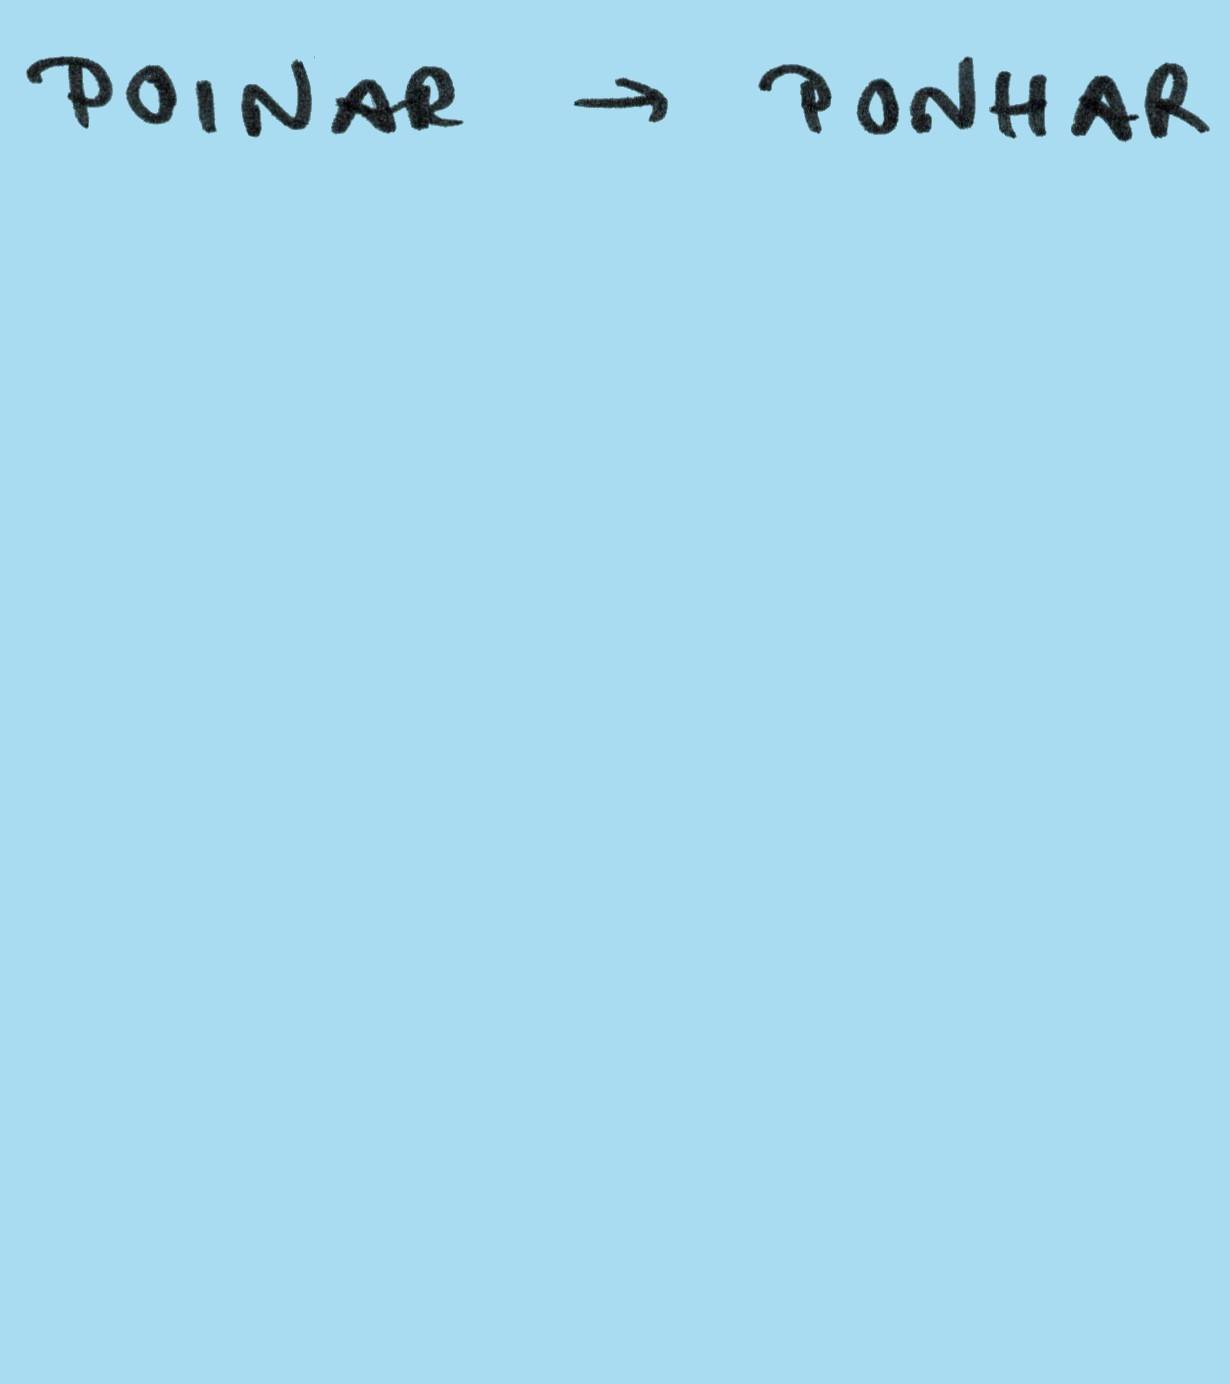 POINAR → PONHAR